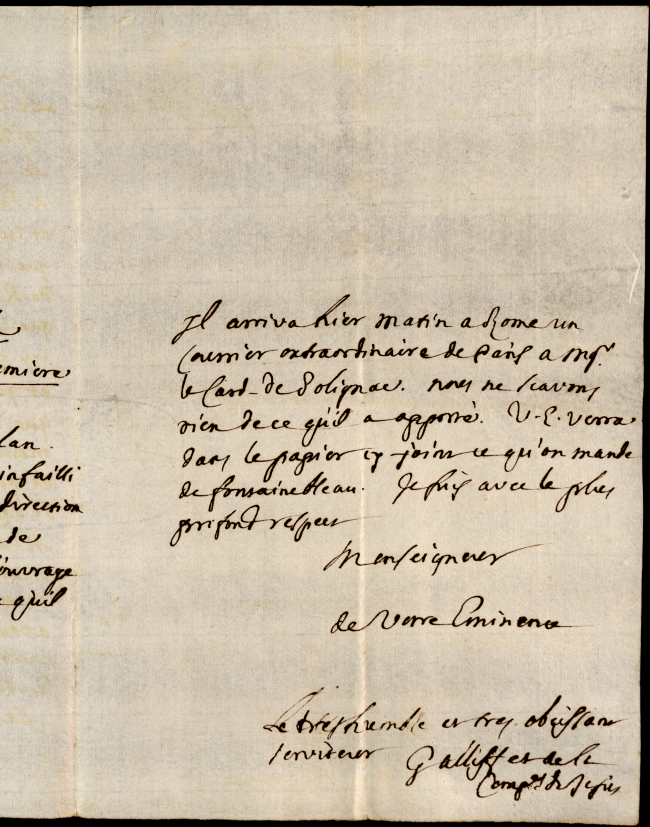 emiere
lan.
infailli
direction
de
ouvrage
qu'il
Il arriva hier matin a Rome un
Courrier extraordinaire de Paris a Mgr.
le Card. de Polignac. nous ne scavons
rien de ce qu'il a apporté. V. E. verra
dans le papier cy-joint ce qu'on mande
de fontainebleau. Je suis avec le plus
profond respect
Monseigneur
de Votre Eminence
Le tres humble et tres obeissant
serviteur Galliffet de la
Compe. de Jesus